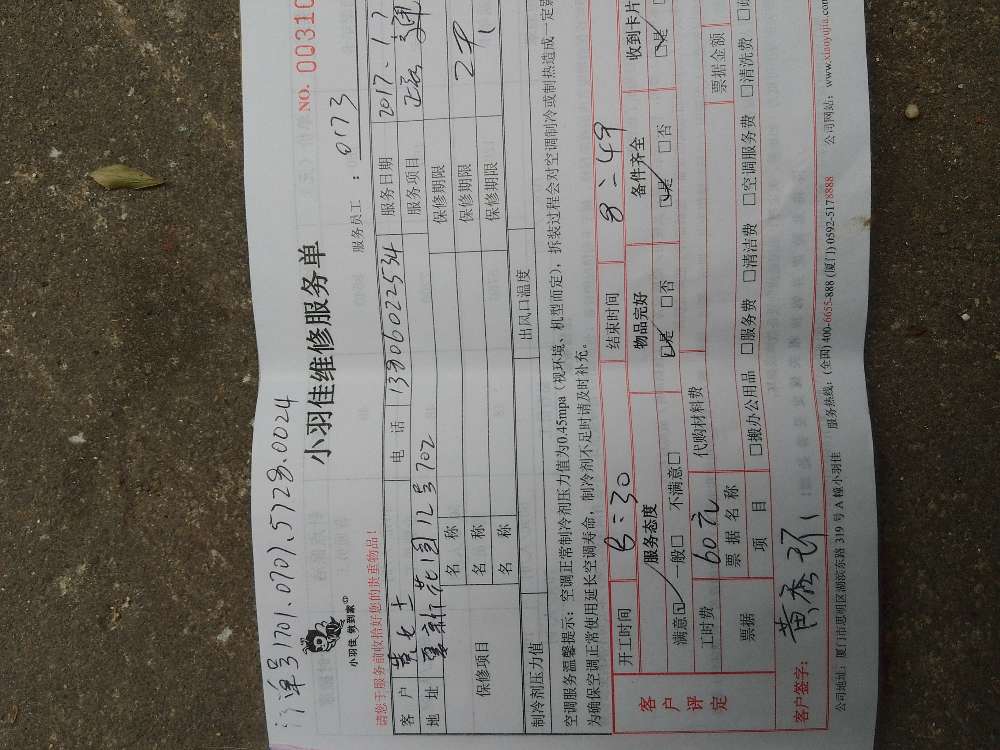 订单号1701.0707.5728.0024
小羽佳维修服务单
NO. 00310
小羽佳 倒到家
服务员工：0173
请您于服务前收拾好您的贵重物品！
客户 黄女士 电话 13806022534 服务日期 2017.1.
地址 12号702 服务项目
保修项目 名称 保修期限
名称 保修期限
名称 保修期限
制冷剂压力值 出风口温度
空调服务温馨提示：空调正常制冷剂压力值为0.45mpa（视环境、机型而定），拆装过程会对空调制冷或制热造成一定
为确保空调正常使用延长空调寿命，制冷剂不足时请及时补充。
开工时间 8:30 结束时间 8:49
客户评定 服务态度 物品完好 备件齐全 收到卡片
满意☑ 一般□ 不满意□ ☑是 □否 ☑是 □否 ☑是
工时费 60元 代购材料费
票据 票据名称 票据金额
项目 □搬办公用品 □服务费 □清洁费 □空调服务费 □清洗费
客户签字：
公司地址：厦门市思明区湖滨东路319号A幢小羽佳 服务热线：(全国) 400-6655-888 (厦门) 0592-5178888 公司网站：www.xiaoyujia.com